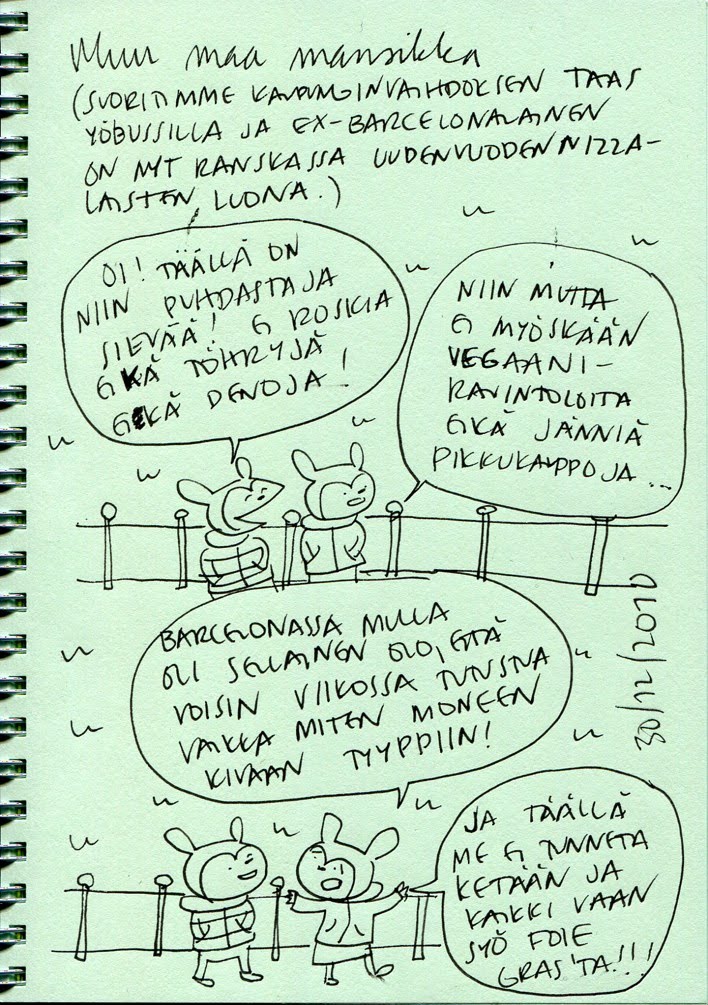 Muu maa mansikka
(SUORITIMME KAUPUNGINVAIHDOKSEN TAAS
YÖBUSSILLA JA EX-BARCELONALAINEN
ON NYT RANSKASSA UUDENVUODENNIZZA-
LAISTEN LUONA.)
OI! TÄÄLLÄ ON
NIIN PUHDASTA JA
SIEVÄÄ! EI ROSKIA
EIKÄ TÖHRYJÄ
EIKÄ DENOJA!
NIIN MUTTA
EI MYÖSKÄÄN
VEGAANI-
RAVINTOLOITA
EIKÄ JÄNNIÄ
PIKKUKAUPPOJA...
BARCELONASSA MULLA
OLI SELLAINEN OLO, ETTÄ
VOISIN VIIKOSSA TUTUSTUA
VAIKKA MITEN MONEEN
KIVAAN TYYPPIIN!
30/12/2010
JA TÄÄLLÄ
ME EI TUNNETA
KETÄÄN JA
KAIKKI VAAN
SYÖ FOIE
GRAS'TA!!!